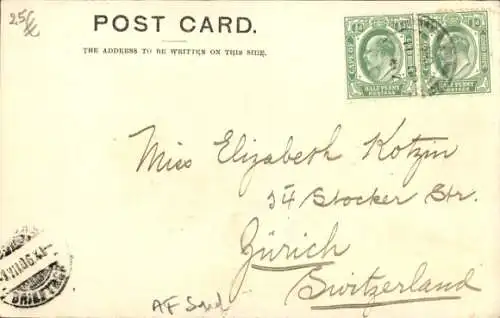 25€
POST CARD.
THE ADDRESS TO BE WRITTEN ON THIS SIDE.
HALF PENNY
POSTAGE
HALF PENNY
POSTAGE
Miss Elizabeth Kotzin
34 Stocker Str.
Zürich
Switzerland
BRIEFTRÄGER
AF